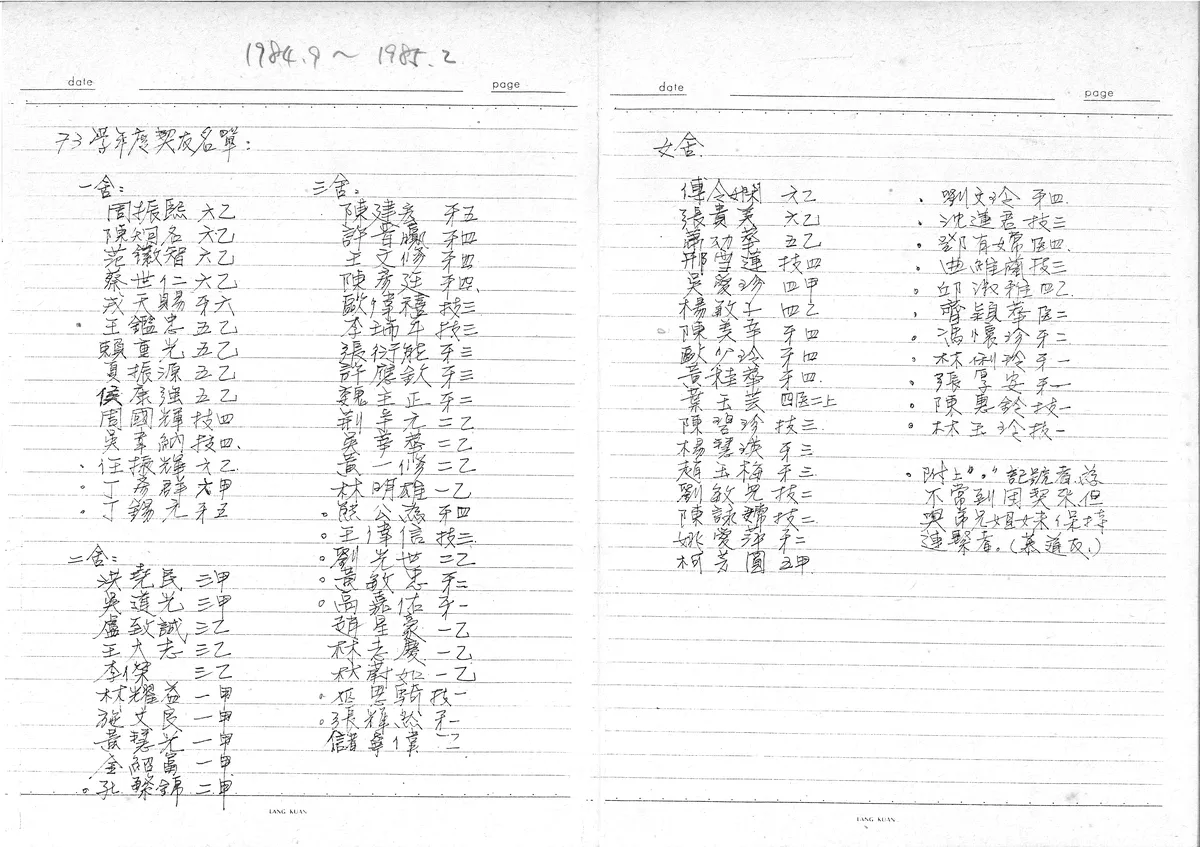 1984.9 ~ 1985.2
date
page
73學年度契友名單：
一舍：
周振熙 六乙
陳 名 六乙
范徽智 六乙
蔡世仁 六乙
戎天賜 牙六
。王鑑忠 五乙
賴重光 五乙
夏振源 五乙
侯康強 五乙
周國輝 技四
吳韋納 技四
。任振輝 六乙
。丁彥群 六甲
。丁錫元 牙五
二舍：
洪堯民 三甲
吳道光 三甲
盧致誠 三乙
王大志 三乙
李傑 三乙
林耀益 一甲
施文良 一甲
黃慧光 一甲
金紹富 一甲
。孔繁錦 二甲
三舍：
陳建彥 牙五
許晉 牙四
王文修 牙四
陳彥廷 牙四
歐偉禧 技三
李瑞年 技三
張衍能 牙三
許應欽 牙三
魏王正 牙二
荊 元 二乙
華恭 二乙
黃一修 二乙
林明雄 一乙
。熊公為 牙四
。王偉信 技三
。劉光世 二乙
。黃敏忠 牙二
。高嘉佑 牙一
趙星豪 一乙
林志慶 一乙
秋蔚如 一乙
。思騎 技一
。張雅然 牙一
儲寧偉 二
LANG KUAN
date
page
女舍
傅令嫻 六乙
張貴美 六乙
蕭功華 五乙
邢雪蓮 技四
吳愛珍 四甲
楊敏士 四乙
陳美幸 牙四
歐公玲 牙四
黃桂華 牙四
葉玉芸 四医二上
陳碧珍 技三
楊慧瑛 牙三
趙玉梅 牙三
劉敏兒 技二
陳詠嫦 技二
姚愛萍 牙二
柯芳圓 五甲
。劉文玲 牙四
。沈蓮君 技三
。鄧有嫦 医四
。曲維蘭 技三
。邱淑雅 四乙
。齊穎蓉 医二
。馮懷珍 牙二
。林俐玲 牙一
。張厚安 牙一
。陳惠鈴 技一
。林玉玲 技一
。附上“。”記號者為
不常到団契來，但
與弟兄姐妹保持
連繫者。（慕道友）
LANG KUAN